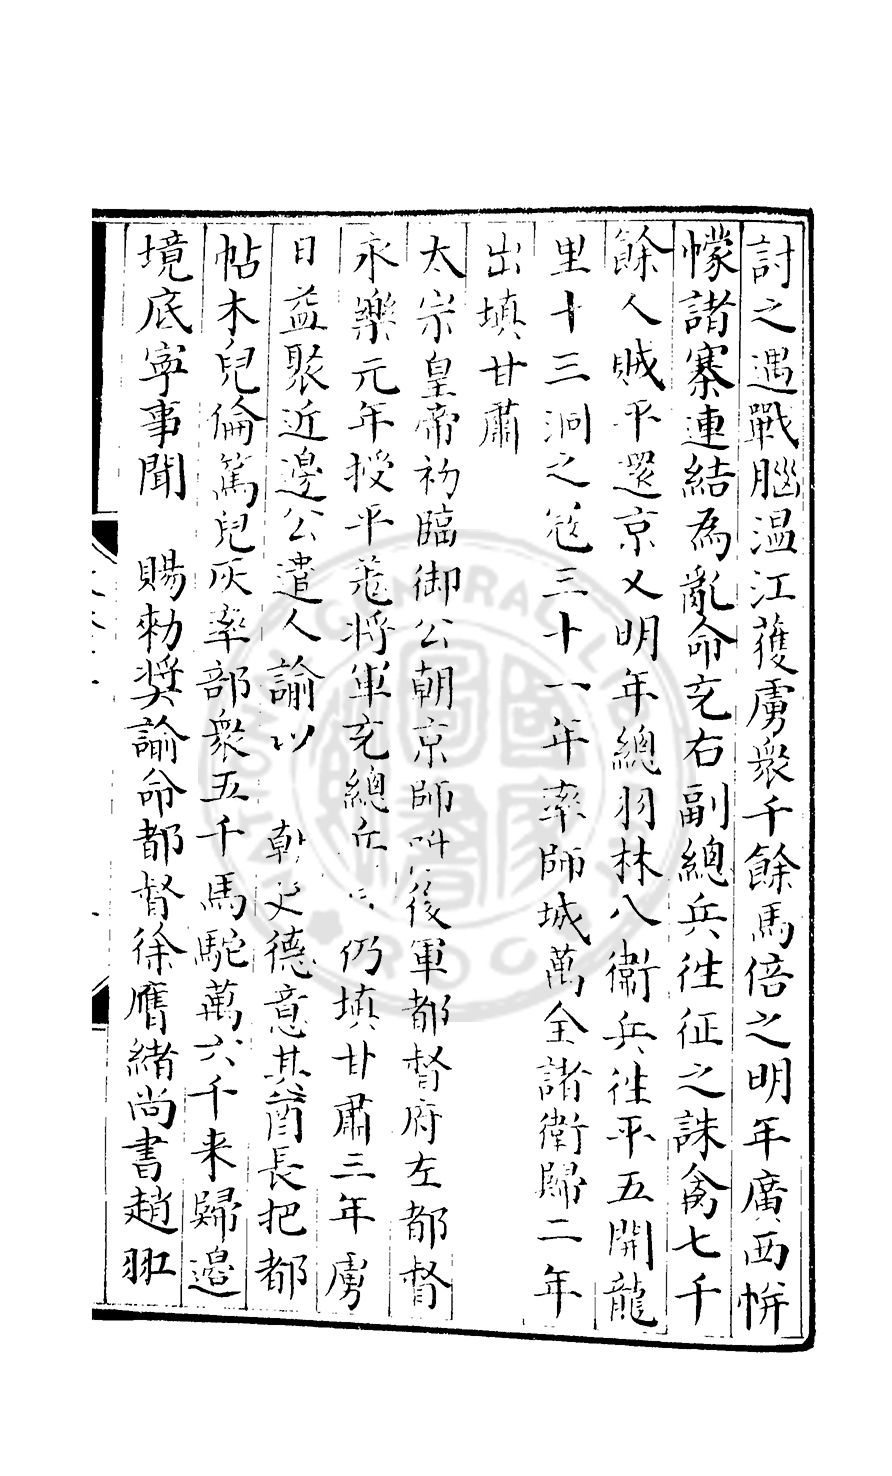 討之遇戰腦温江獲虜衆千餘馬倍之明年廣西𢃳
幪諸寨連結為亂命充右副總兵徃征之誅禽七千
餘人賊平還京又明年總羽林八衞兵徃平五開龍
里十三洞之寇三十一年率師城萬全諸衛歸二年
出填甘肅
太宗皇帝初臨御公朝京師 後軍都督府左都督
永樂元年授平羌將軍充總兵 仍填甘肅三年虜
日益聚近邊公遣人諭以 朝廷德意其酋長把都
帖木兒倫篤兒灰率部衆五千馬駝萬六千来歸邊
境底寧事聞 賜勑奬諭命都督徐膺緒尚書趙羾